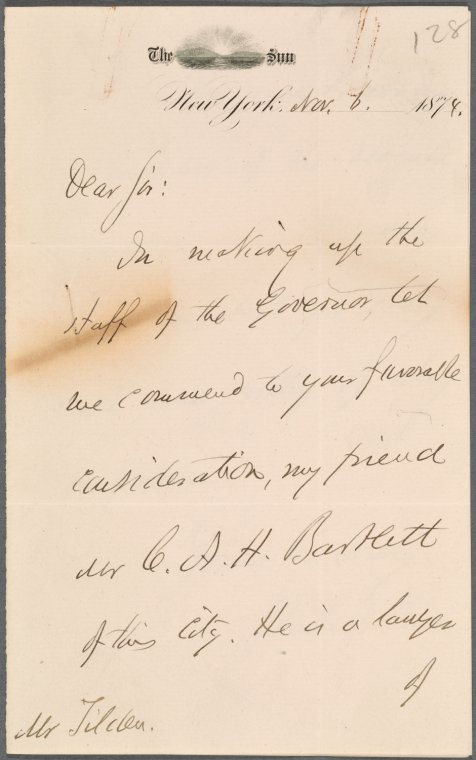 128
The Sun
New York, Nov. 6. 1874.
Dear Sir:
In making up the
staff of the Governor, let
me commend to your favorable
consideration, my friend
Mr C. A. H. Bartlett
of this City. He is a lawyer
of
Mr Tilden.